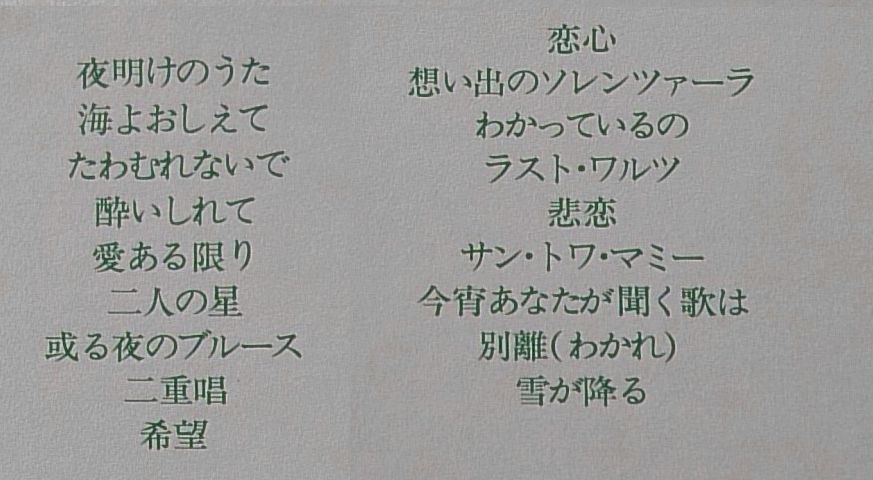 夜明けのうた
海よおしえて
たわむれないで
酔いしれて
愛ある限り
二人の星
或る夜のブルース
二重唱
希望
恋心
想い出のソレンツァーラ
わかっているの
ラスト・ワルツ
悲恋
サン・トワ・マミー
今宵あなたが聞く歌は
別離(わかれ)
雪が降る